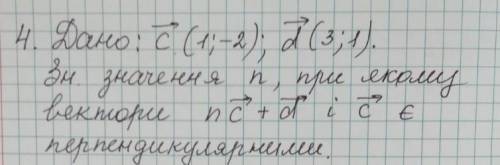 4. Дано: c⃗ (1;-2); d⃗ (3;1).
Зн. значення n, при якому
вектори nc⃗ + d⃗ і c⃗ є
перпендикулярними.